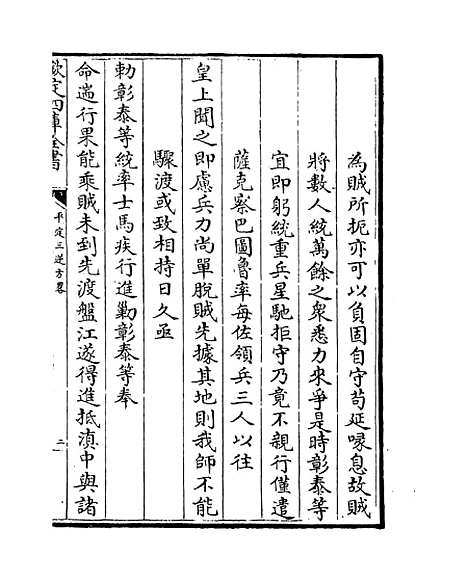 為賊所扼亦可以負固自守苟延喙息故賊
將數人統萬餘之衆悉力來爭是時彰泰等
宜即躬統重兵星馳拒守乃竟不親行僅遣
薩克察巴圖魯率每佐領兵三人以往
皇上聞之即慮兵力尚單脫賊先據其地則我師不能
驟渡或致相持日久亟
勅彰泰等統率士馬疾行進勦彰泰等奉
命遄行果能乘賊未到先渡盤江遂得進抵滇中與諸
欽定四庫全書
平定三逆方畧
二